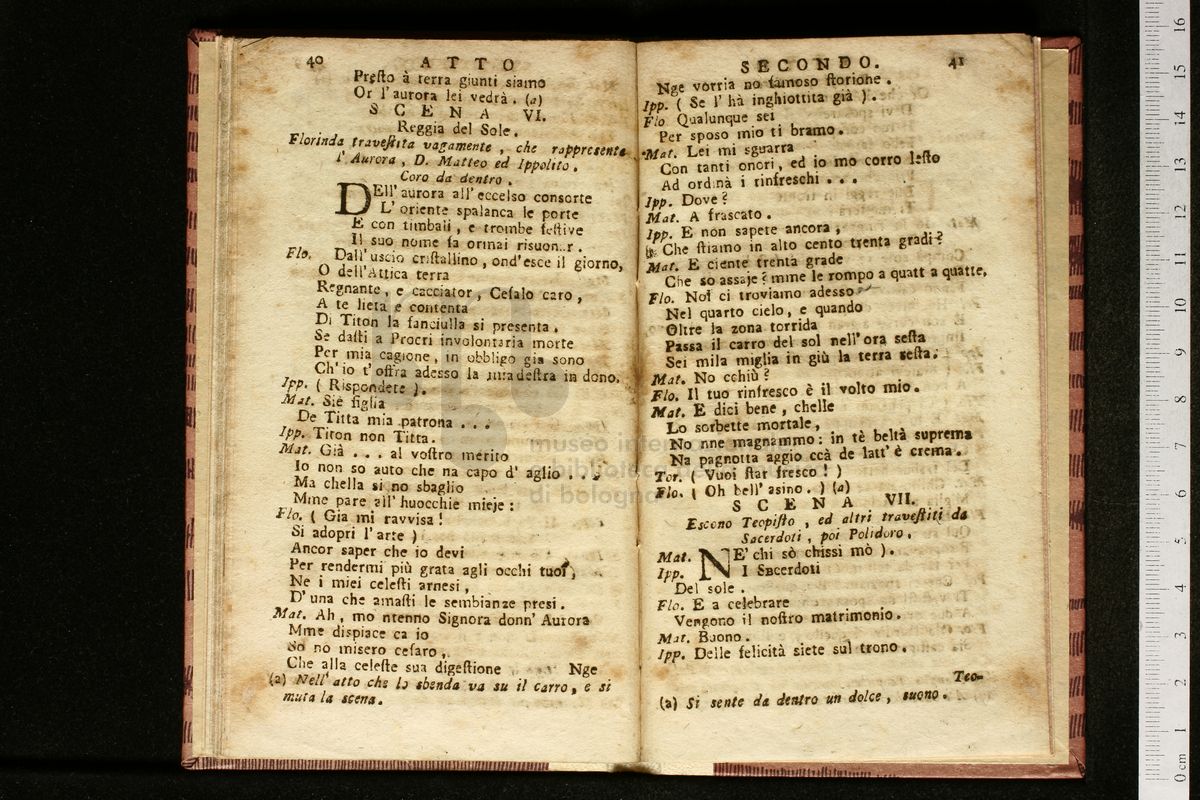 40 ATTO
Presto à terra giunti siamo
Or l'aurora lei vedrà. (a)
SCENA VI.
Reggia del Sole.
Florinda travestita vagamente, che rappresenta
l'Aurora, D. Matteo ed Ippolito.
Coro da dentro.
DEll'aurora all'eccelso consorte
L'oriente spalanca le porte
E con timbali, e trombe festive
Il suo nome fa ormai risuonar.
Flo. Dall'uscio cristallino, ond'esce il giorno,
O dell'Attica terra
Regnante, e cacciator, Cefalo caro,
A te lieta e contenta
Di Titon la fanciulla si presenta.
Se dasti a Procri involontaria morte
Per mia cagione, in obbligo gia sono
Ch'io t'offra adesso la mia destra in dono.
Ipp. ( Rispondete ).
Mat. Siè figlia
De Titta mia patrona ...
Ipp. Titon non Titta.
Mat. Già ... al vostro merito
Io non so auto che na capo d'aglio ...
Ma chella si no sbaglio
Mme pare all'huocchie mieje :
Flo. ( Gia mi ravvisa !
Si adopri l'arte )
Ancor saper che io devi
Per rendermi più grata agli occhi tuoi,
Ne i miei celesti arnesi,
D'una che amasti le sembianze presi.
Mat. Ah, mo ntenno Signora donn'Autora
Mme dispiace ca io
So no misero cefaro,
Che alla celeste sua digestione Nge
(a) Nell'atto che la sbenda va su il carro, e si
muta la scena.
SECONDO. 41
Nge vorria no famoso storione.
Ipp. ( Se l'hà inghiottita già ).
Flo Qualunque sei
Per sposo mio ti bramo.
Mat. Lei mi sguarra
Con tanti onori, ed io mo corro lesto
Ad ordinà i rinfreschi ...
Ipp. Dove ?
Mat. A frascato.
Ipp. E non sapete ancora,
Che stiamo in alto cento trenta gradi ?
Mat. E ciente trenta grade
Che so assaje ? mme le rompo a quatt a quatte.
Flo. Noi ci troviamo adesso
Nel quarto cielo, e quando
Oltre la zona torrida
Passa il carro del sol nell'ora sesta
Sei mila miglia in giù la terra resta.
Mat. No cchiù ?
Flo. Il tuo rinfresco è il volto mio.
Mat. E dici bene, chelle
Lo sorbette mortale,
No nne magnammo : in tè beltà suprema
Na pagnotta aggio ccà de latt'è crema.
Tor. ( Vuoi star fresco ! )
Flo. ( Oh bell'asino. ) (a)
SCENA VII.
Escono Teopisto, ed altri travestiti da
Sacerdoti, poi Polidoro.
Mat. NE' chi sò chissi mò ).
Ipp. I Sacerdoti
Del sole.
Flo. E a celebrare
Vengono il nostro matrimonio.
Mat. Buono.
Ipp. Delle felicità siete sul trono.
Teo-
(a) Si sente da dentro un dolce, suono.
museo
biblioteca
di bologna